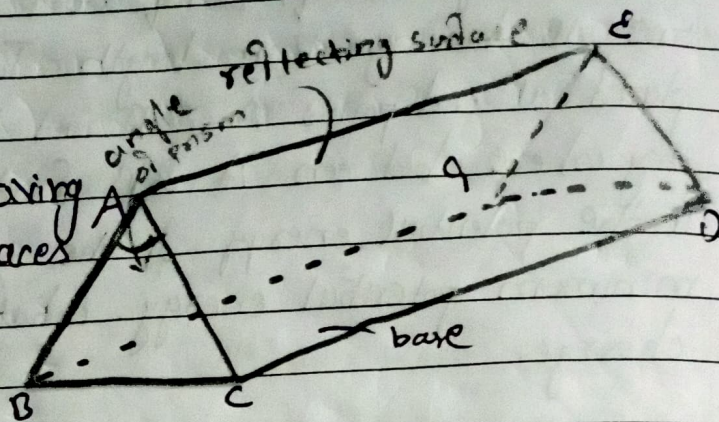 E
reflecting surface
angle
of prism
aving
A
aces
q
D
base
B
C